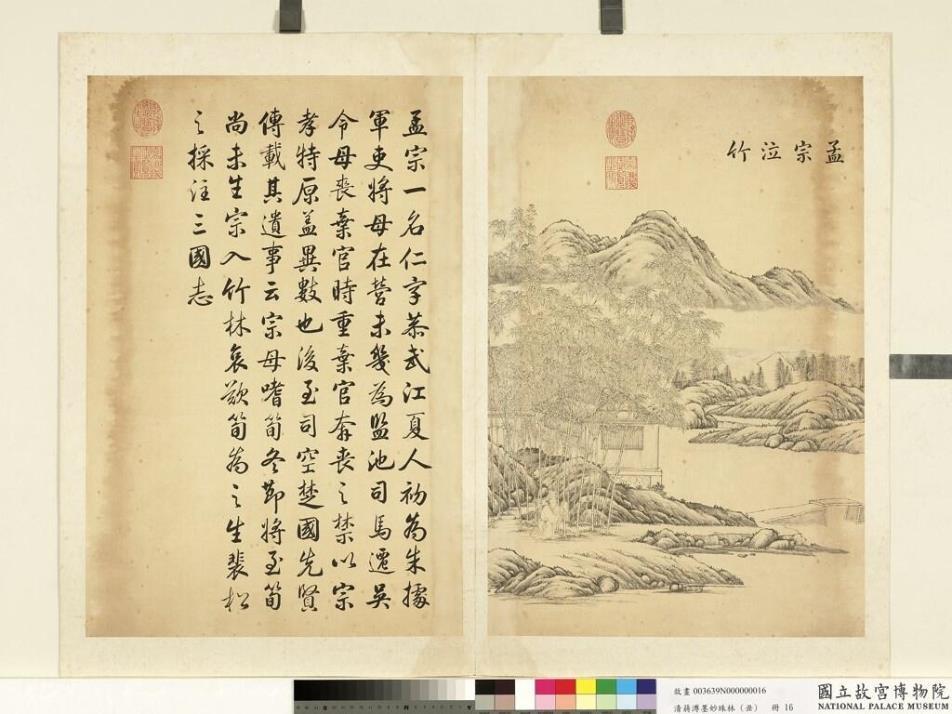 孟宗泣竹
孟宗一名仁字恭武江夏人初為朱據
軍吏將母在營未幾為監池司馬遷吳
令母喪棄官時重棄官奔喪之禁以宗
孝特原蓋異數也後至司空楚國先賢
傳載其遺事云宗母嗜筍冬節將至筍
尚未生宗入竹林哀歎筍為之生裴松
之採注三國志
故畫 003639N000000016
清蔣溥墨妙珠林(丑) 冊 16
國立故宮博物院
NATIONAL PALACE MUSEUM